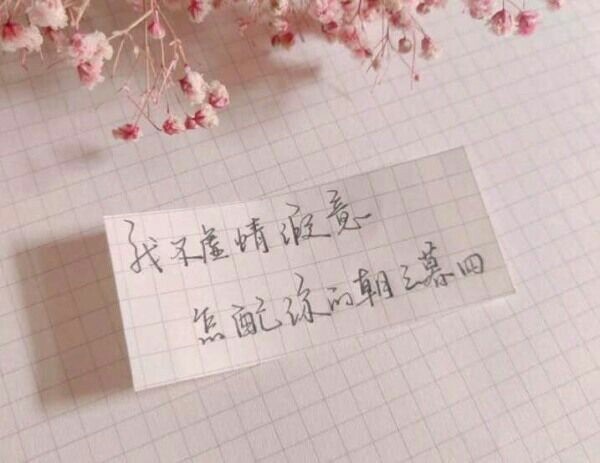 我不虚情假意
怎配你的朝三暮四